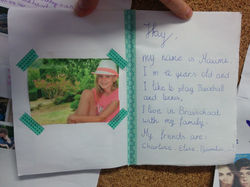 Hey,
my name is
I'm 12 years old and
I like to play Baseball
and tennis,
I live in Brasschaat
with my family.
My friends are:
Charlotte, Elise,